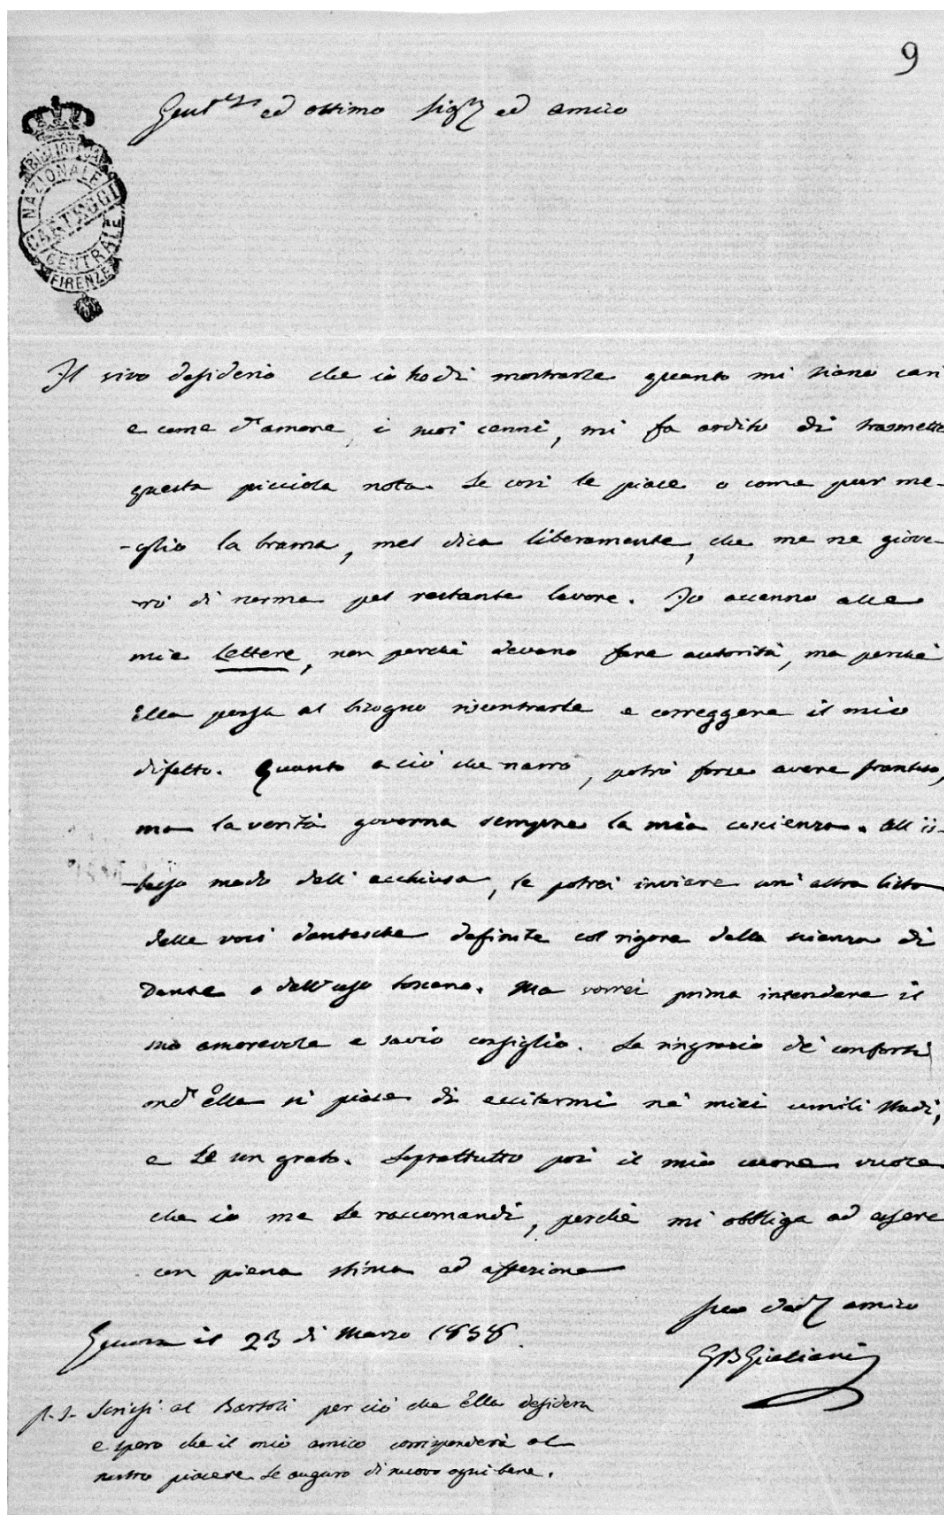 9
Gent.mo ed ottimo Sigr ed amico
BIBLIOTECA
NAZIONALE
CARTEGGI
CENTRALE
FIRENZE
Il vivo desiderio che io ho di mostrarle quanto mi siano cari
e come d'amore, i suoi cenni, mi fa ardito di trasmette
questa picciola nota. Se così le piace o come pur me-
-glio la brama, mel dica liberamente, che me ne giove-
rò di norma pel restante lavoro. Io accenno alle
mie Lettere, non perchè devano fare autorità, ma perchè
Ella possa al bisogno riscontrarle e correggere il mio
difetto. Quanto a ciò che narro, potrò forse avere franteso,
ma la verità governa sempre la mia coscienza. All'is-
-tesso modo dell'acchiusa, le potrei inviare un'altra lista
delle voci dantesche definite col rigore della scienza di
Dante e dell'uso toscano. Ma vorrei prima intendere il
suo amorevole e savio consiglio. La ringrazio de' conforti
ond'Ella si piace di eccitarmi ne' miei umili studi,
e Le son grato. Soprattutto poi il mio cuore vuole
che io me Le raccomandi, perchè mi obbliga ad essere
con piena stima ed affezione
Suo amico
Genova il 23 di Marzo 1858.
GBGiuliani
P.S. Scrissi al Bartoli per ciò che Ella desidera
e spero che il mio amico corrisponderà al
nostro piacere. Le auguro di nuovo ogni bene.